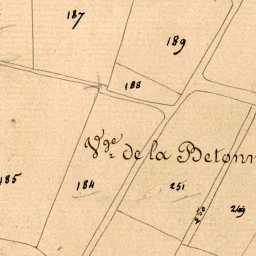 187
189
188
Vge de la Betonn
185
184
251
250
249